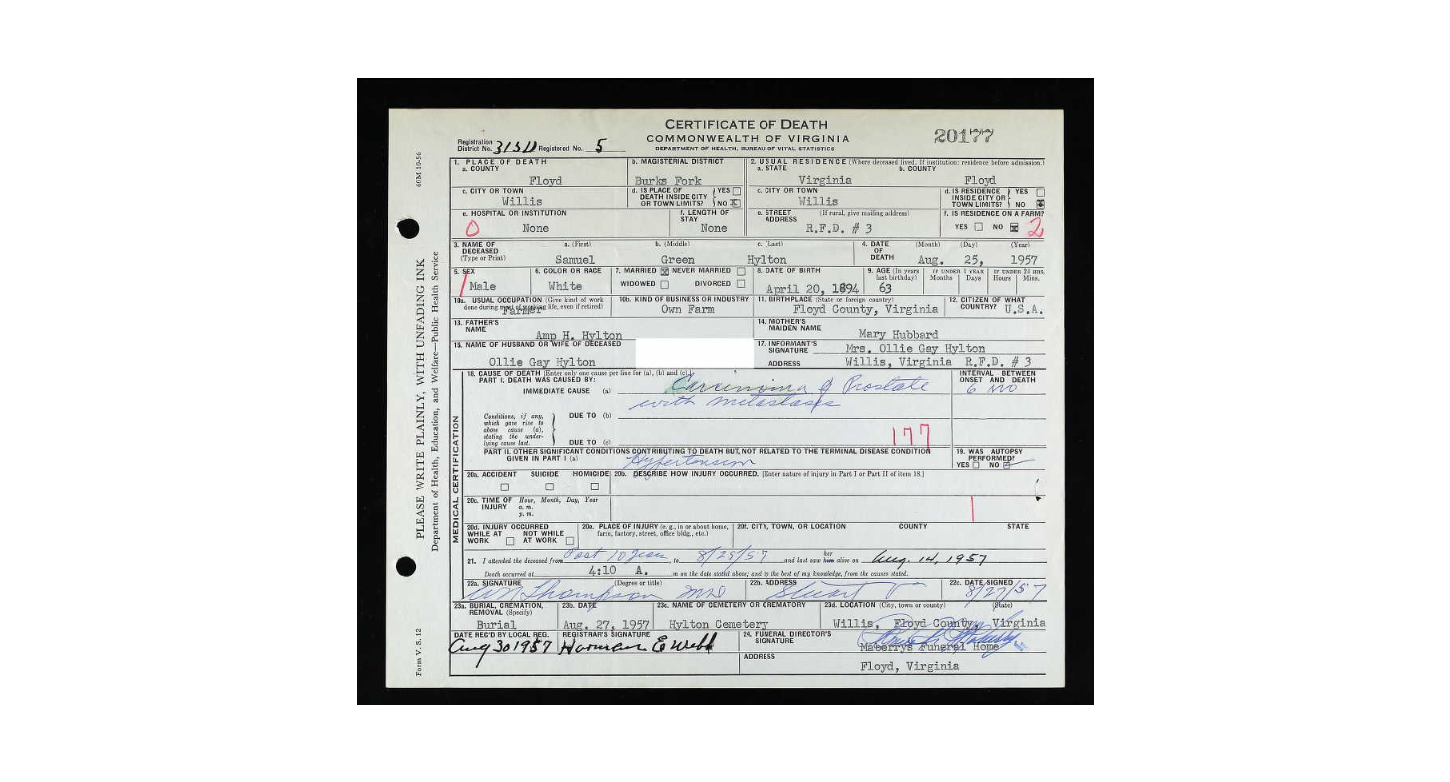 CERTIFICATE OF DEATH
COMMONWEALTH OF VIRGINIA
DEPARTMENT OF HEALTH, BUREAU OF VITAL STATISTICS
20177
Registration District No. 315D Registered No. 5
1. PLACE OF DEATH
a. COUNTY
Floyd
b. MAGISTERIAL DISTRICT
Burks Fork
2. USUAL RESIDENCE (Where deceased lived. If institution: residence before admission.)
a. STATE
Virginia
b. COUNTY
Floyd
c. CITY OR TOWN
Willis
d. IS PLACE OF DEATH INSIDE CITY OR TOWN LIMITS? YES NO X
c. CITY OR TOWN
Willis
d. IS RESIDENCE INSIDE CITY OR TOWN LIMITS? YES NO
e. HOSPITAL OR INSTITUTION
0 None
f. LENGTH OF STAY
None
e. STREET ADDRESS (If rural, give mailing address)
R.F.D. # 3
f. IS RESIDENCE ON A FARM?
YES NO 2
3. NAME OF DECEASED (Type or Print)
a. (First) b. (Middle) c. (Last)
Samuel Green Hylton
4. DATE OF DEATH (Month) (Day) (Year)
Aug. 25, 1957
5. SEX
1 Male
6. COLOR OR RACE
White
7. MARRIED X NEVER MARRIED
WIDOWED DIVORCED
8. DATE OF BIRTH
April 20, 1894
9. AGE (In years last birthday)
63
IF UNDER 1 YEAR Months Days
IF UNDER 24 HRS. Hours Mins.
10a. USUAL OCCUPATION (Give kind of work done during most of working life, even if retired)
Farmer
10b. KIND OF BUSINESS OR INDUSTRY
Own Farm
11. BIRTHPLACE (State or foreign country)
Floyd County, Virginia
12. CITIZEN OF WHAT COUNTRY?
U.S.A.
13. FATHER'S NAME
Amp H. Hylton
14. MOTHER'S MAIDEN NAME
Mary Hubbard
15. NAME OF HUSBAND OR WIFE OF DECEASED
Ollie Gay Hylton
17. INFORMANT'S SIGNATURE Mrs. Ollie Gay Hylton
ADDRESS Willis, Virginia R.F.D. # 3
18. CAUSE OF DEATH (Enter only one cause per line for (a), (b) and (c).)
PART I. DEATH WAS CAUSED BY:
IMMEDIATE CAUSE (a) Carcinoma of Prostate
with metastases
INTERVAL BETWEEN ONSET AND DEATH
6 mo
Conditions, if any, which gave rise to above cause (a), stating the underlying cause last.
DUE TO (b)
DUE TO (c)
177
PART II. OTHER SIGNIFICANT CONDITIONS CONTRIBUTING TO DEATH BUT NOT RELATED TO THE TERMINAL DISEASE CONDITION GIVEN IN PART I (a)
Hypertension
19. WAS AUTOPSY PERFORMED?
YES NO
20a. ACCIDENT SUICIDE HOMICIDE
20b. DESCRIBE HOW INJURY OCCURRED. (Enter nature of injury in Part I or Part II of item 18.)
20c. TIME OF INJURY Hour, Month, Day, Year
a. m.
p. m.
20d. INJURY OCCURRED
WHILE AT WORK NOT WHILE AT WORK
20e. PLACE OF INJURY (e. g., in or about home, farm, factory, street, office bldg., etc.)
20f. CITY, TOWN, OR LOCATION COUNTY STATE
21. I attended the deceased from Past 10 years to 8/25/57 and last saw her him alive on Aug. 14, 1957
Death occurred at 4:10 A. m on the date stated above; and to the best of my knowledge, from the causes stated.
22a. SIGNATURE (Degree or title)
Thompson MD
22b. ADDRESS
Stuart V
22c. DATE SIGNED
8/27/57
23a. BURIAL, CREMATION, REMOVAL (Specify)
Burial
23b. DATE
Aug. 27, 1957
23c. NAME OF CEMETERY OR CREMATORY
Hylton Cemetery
23d. LOCATION (City, town or county) (State)
Willis, Floyd County, Virginia
DATE REC'D BY LOCAL REG.
Aug 30 1957
REGISTRAR'S SIGNATURE
Harman E Webb
24. FUNERAL DIRECTOR'S SIGNATURE
Maberrys Funeral Home
ADDRESS
Floyd, Virginia
MEDICAL CERTIFICATION
40M 10-56
PLEASE WRITE PLAINLY, WITH UNFADING INK
Department of Health, Education, and Welfare—Public Health Service
Form V. S. 12